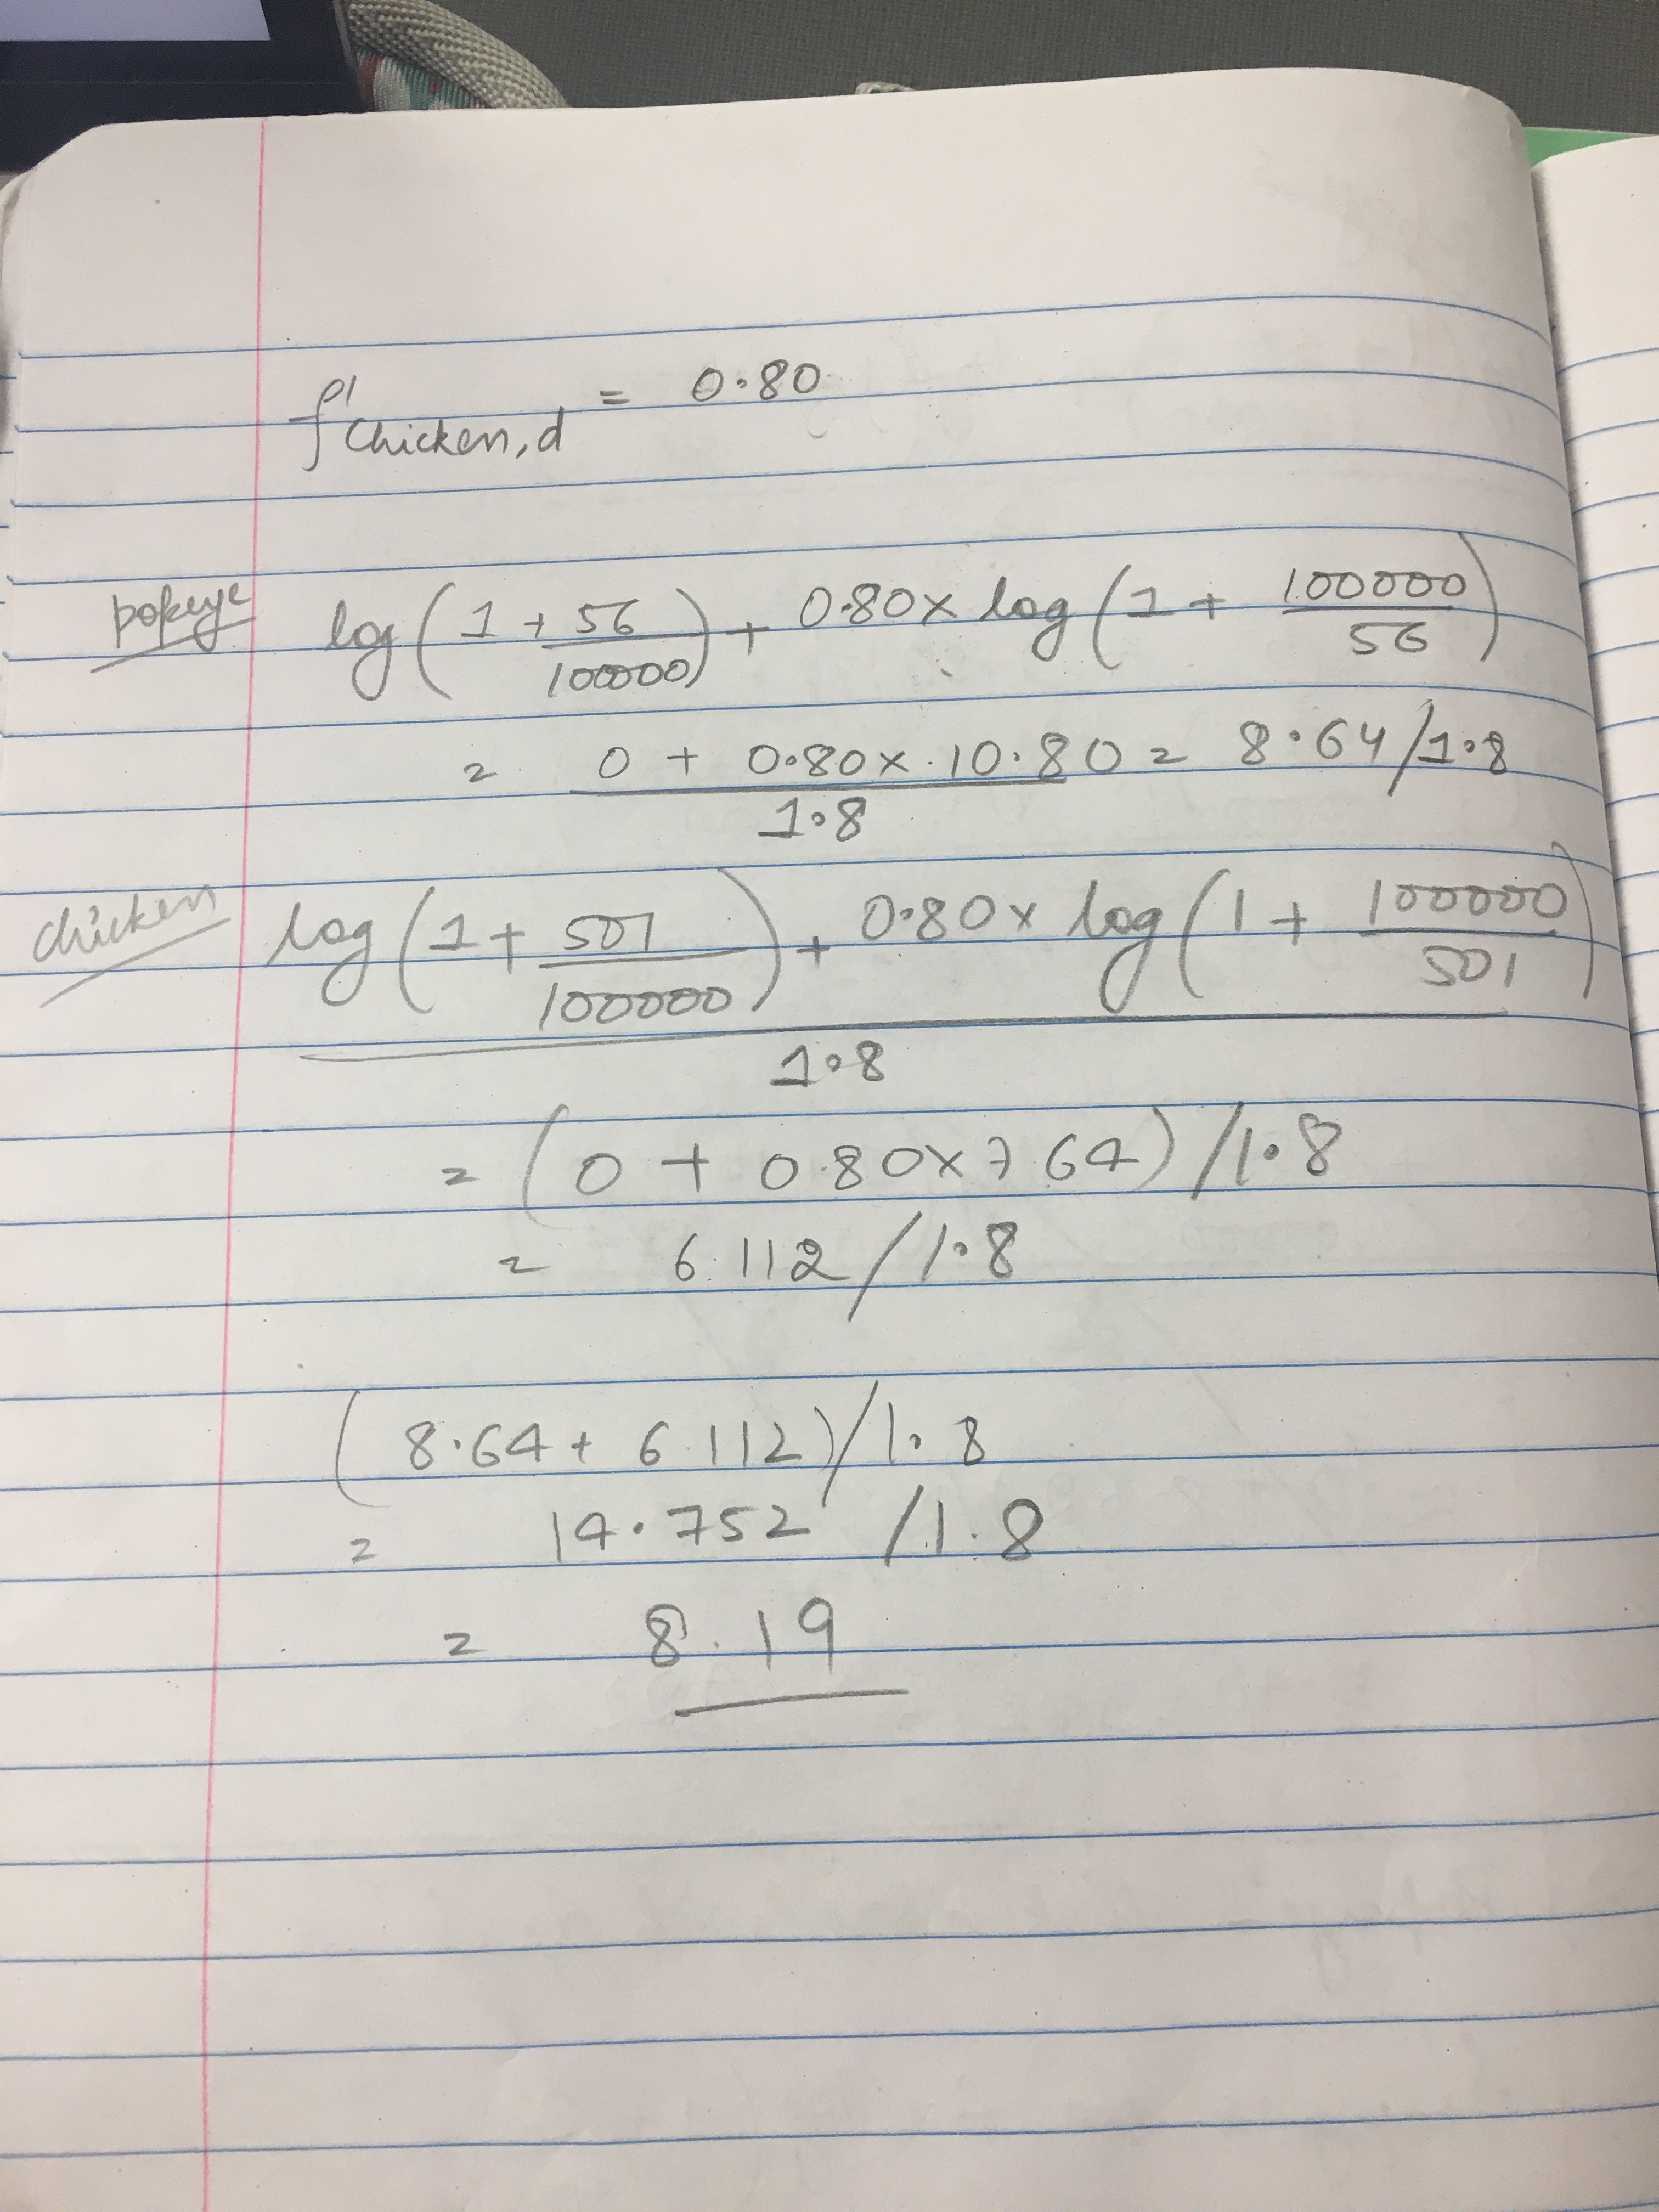 f'Chicken,d = 0.80
popeye log(1 + 56/100000) + 0.80 x log(1 + 100000/56)
= (0 + 0.80 x 10.80)/1.8 = 8.64/1.8
chicken (log(1 + 501/100000) + 0.80 x log(1 + 100000/501))/1.8
= (0 + 0.80 x 7.64)/1.8
= 6.112/1.8
(8.64 + 6.112)/1.8
= 14.752/1.8
= 8.19